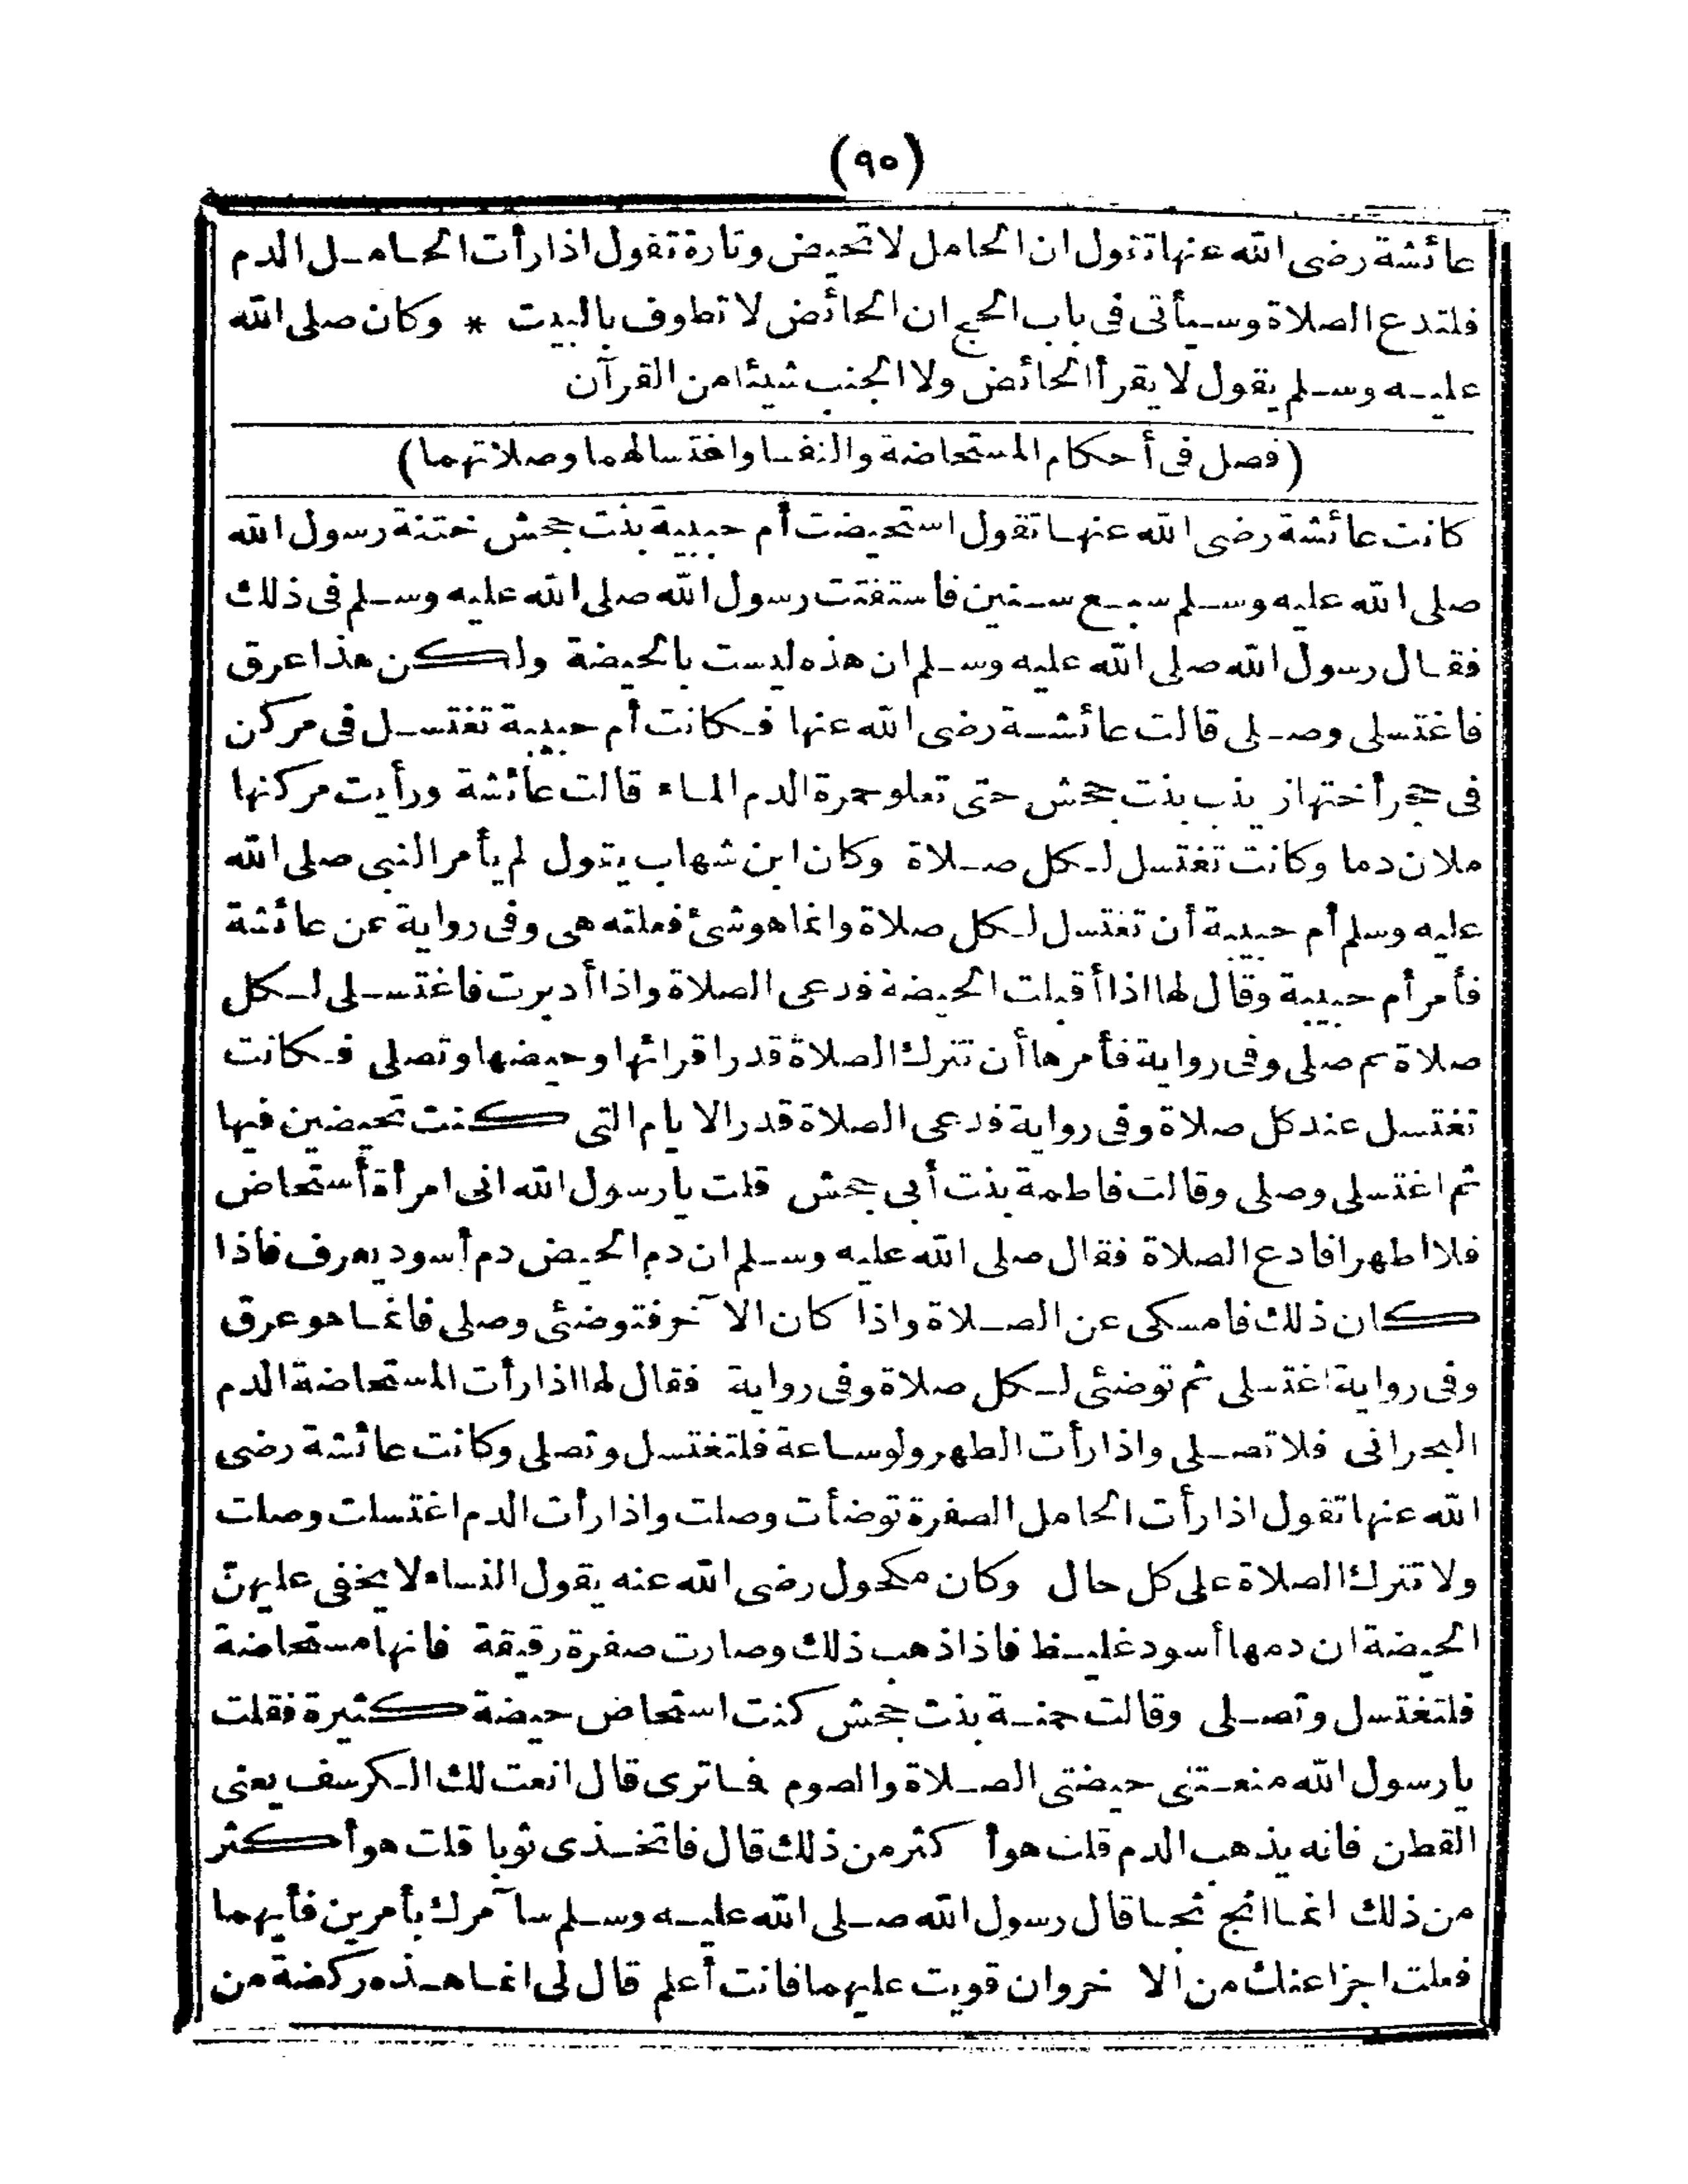 (٩٠)
عائشة رضى الله عنها تقول ان الحامل لا تحيض وتارة تقول اذا رأت الحامل الدم
فلتدع الصلاة وسيأتى فى باب الحج ان الحائض لا تطوف بالبيت * وكان صلى الله
عليه وسلم يقول لا يقرأ الحائض ولا الجنب شيئا من القرآن
(فصل فى أحكام المستحاضة والنفسا واغتسالهما وصلاتهما)
كانت عائشة رضى الله عنها تقول استحيضت أم حبيبة بنت جحش ختنة رسول الله
صلى الله عليه وسلم سبع سنين فاستفتت رسول الله صلى الله عليه وسلم فى ذلك
فقال رسول الله صلى الله عليه وسلم ان هذه ليست بالحيضة ولكن هذا عرق
فاغتسلى وصلى قالت عائشة رضى الله عنها فكانت أم حبيبة تغتسل فى مركن
فى حجر أختها زينب بنت جحش حتى تعلو حمرة الدم الماء قالت عائشة ورأيت مركنها
ملان دما وكانت تغتسل لكل صلاة وكان ابن شهاب يقول لم يأمر النبى صلى الله
عليه وسلم أم حبيبة أن تغتسل لكل صلاة وانما هو شئ فعلته هى وفى رواية عن عائشة
فأمر أم حبيبة وقال لها اذا أقبلت الحيضة فدعى الصلاة واذا أدبرت فاغتسلى لكل
صلاة ثم صلى وفى رواية فأمرها أن تترك الصلاة قدر اقرائها وحيضها وتصلى فكانت
تغتسل عند كل صلاة وفى رواية فدعى الصلاة قدر الايام التى كنت تحيضين فيها
ثم اغتسلى وصلى وقالت فاطمة بنت أبى جحش قلت يا رسول الله انى امرأة أستحاض
فلا اطهر افادع الصلاة فقال صلى الله عليه وسلم ان دم الحيض دم أسود يعرف فاذا
كان ذلك فامسكى عن الصلاة واذا كان الآخر فتوضئى وصلى فانما هو عرق
وفى رواية اغتسلى ثم توضئى لكل صلاة وفى رواية فقال لها اذا رأت المستحاضة الدم
البحرانى فلا تصلى واذا رأت الطهر ولو ساعة فلتغتسل وتصلى وكانت عائشة رضى
الله عنها تقول اذا رأت الحامل الصفرة توضأت وصلت واذا رأت الدم اغتسلت وصلت
ولا تترك الصلاة على كل حال وكان مكحول رضى الله عنه يقول النساء لا يخفى عليهنّ
الحيضة ان دمها أسود غليظ فاذا ذهب ذلك وصارت صفرة رقيقة فانها مستحاضة
فلتغتسل وتصلى وقالت حمنة بنت جحش كنت استحاض حيضة كثيرة فقلت
يا رسول الله منعتنى حيضتى الصلاة والصوم فماترى قال انعت لك الكرسف يعنى
القطن فانه يذهب الدم قلت هو أكثر من ذلك قال فاتخذى ثوبا قلت هو أكثر
من ذلك انما اثج ثجا قال رسول الله صلى الله عليه وسلم سآمرك بأمرين فأيهما
فعلت اجزا عنك من الاخر وان قويت عليهما فانت أعلم قال لى انما هذه ركضة من